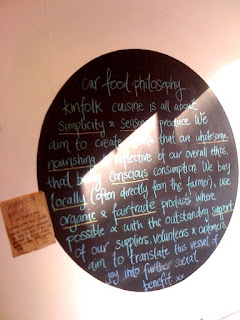 our food philosophy
kinfolk cuisine is all about
simplicity & seasonal produce. We
aim to create that are wholesome,
nourishing & reflective of our overall ethos,
that being conscious consumption. We buy
locally (often directly from the farmer), use
organic & fairtrade products where
possible & with the outstanding support
of our suppliers, volunteers & customers,
aim to translate this vessel of
joy into further social
benefit xx